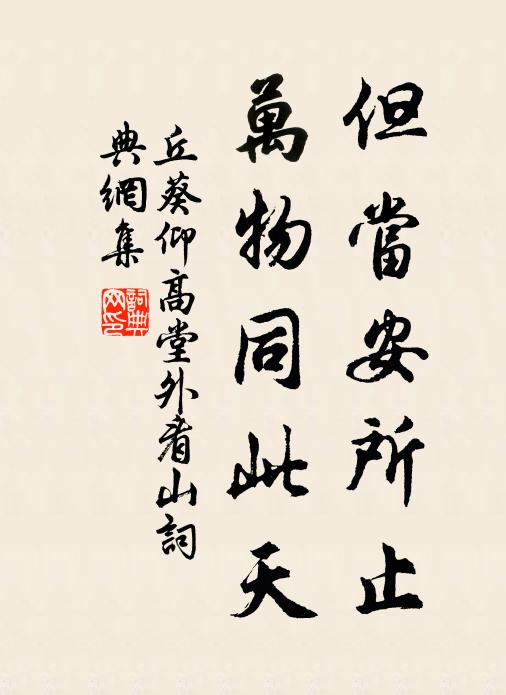 但當安所止
萬物同此天
丘葵仰高堂外看山詞
典網集
詞典
网印